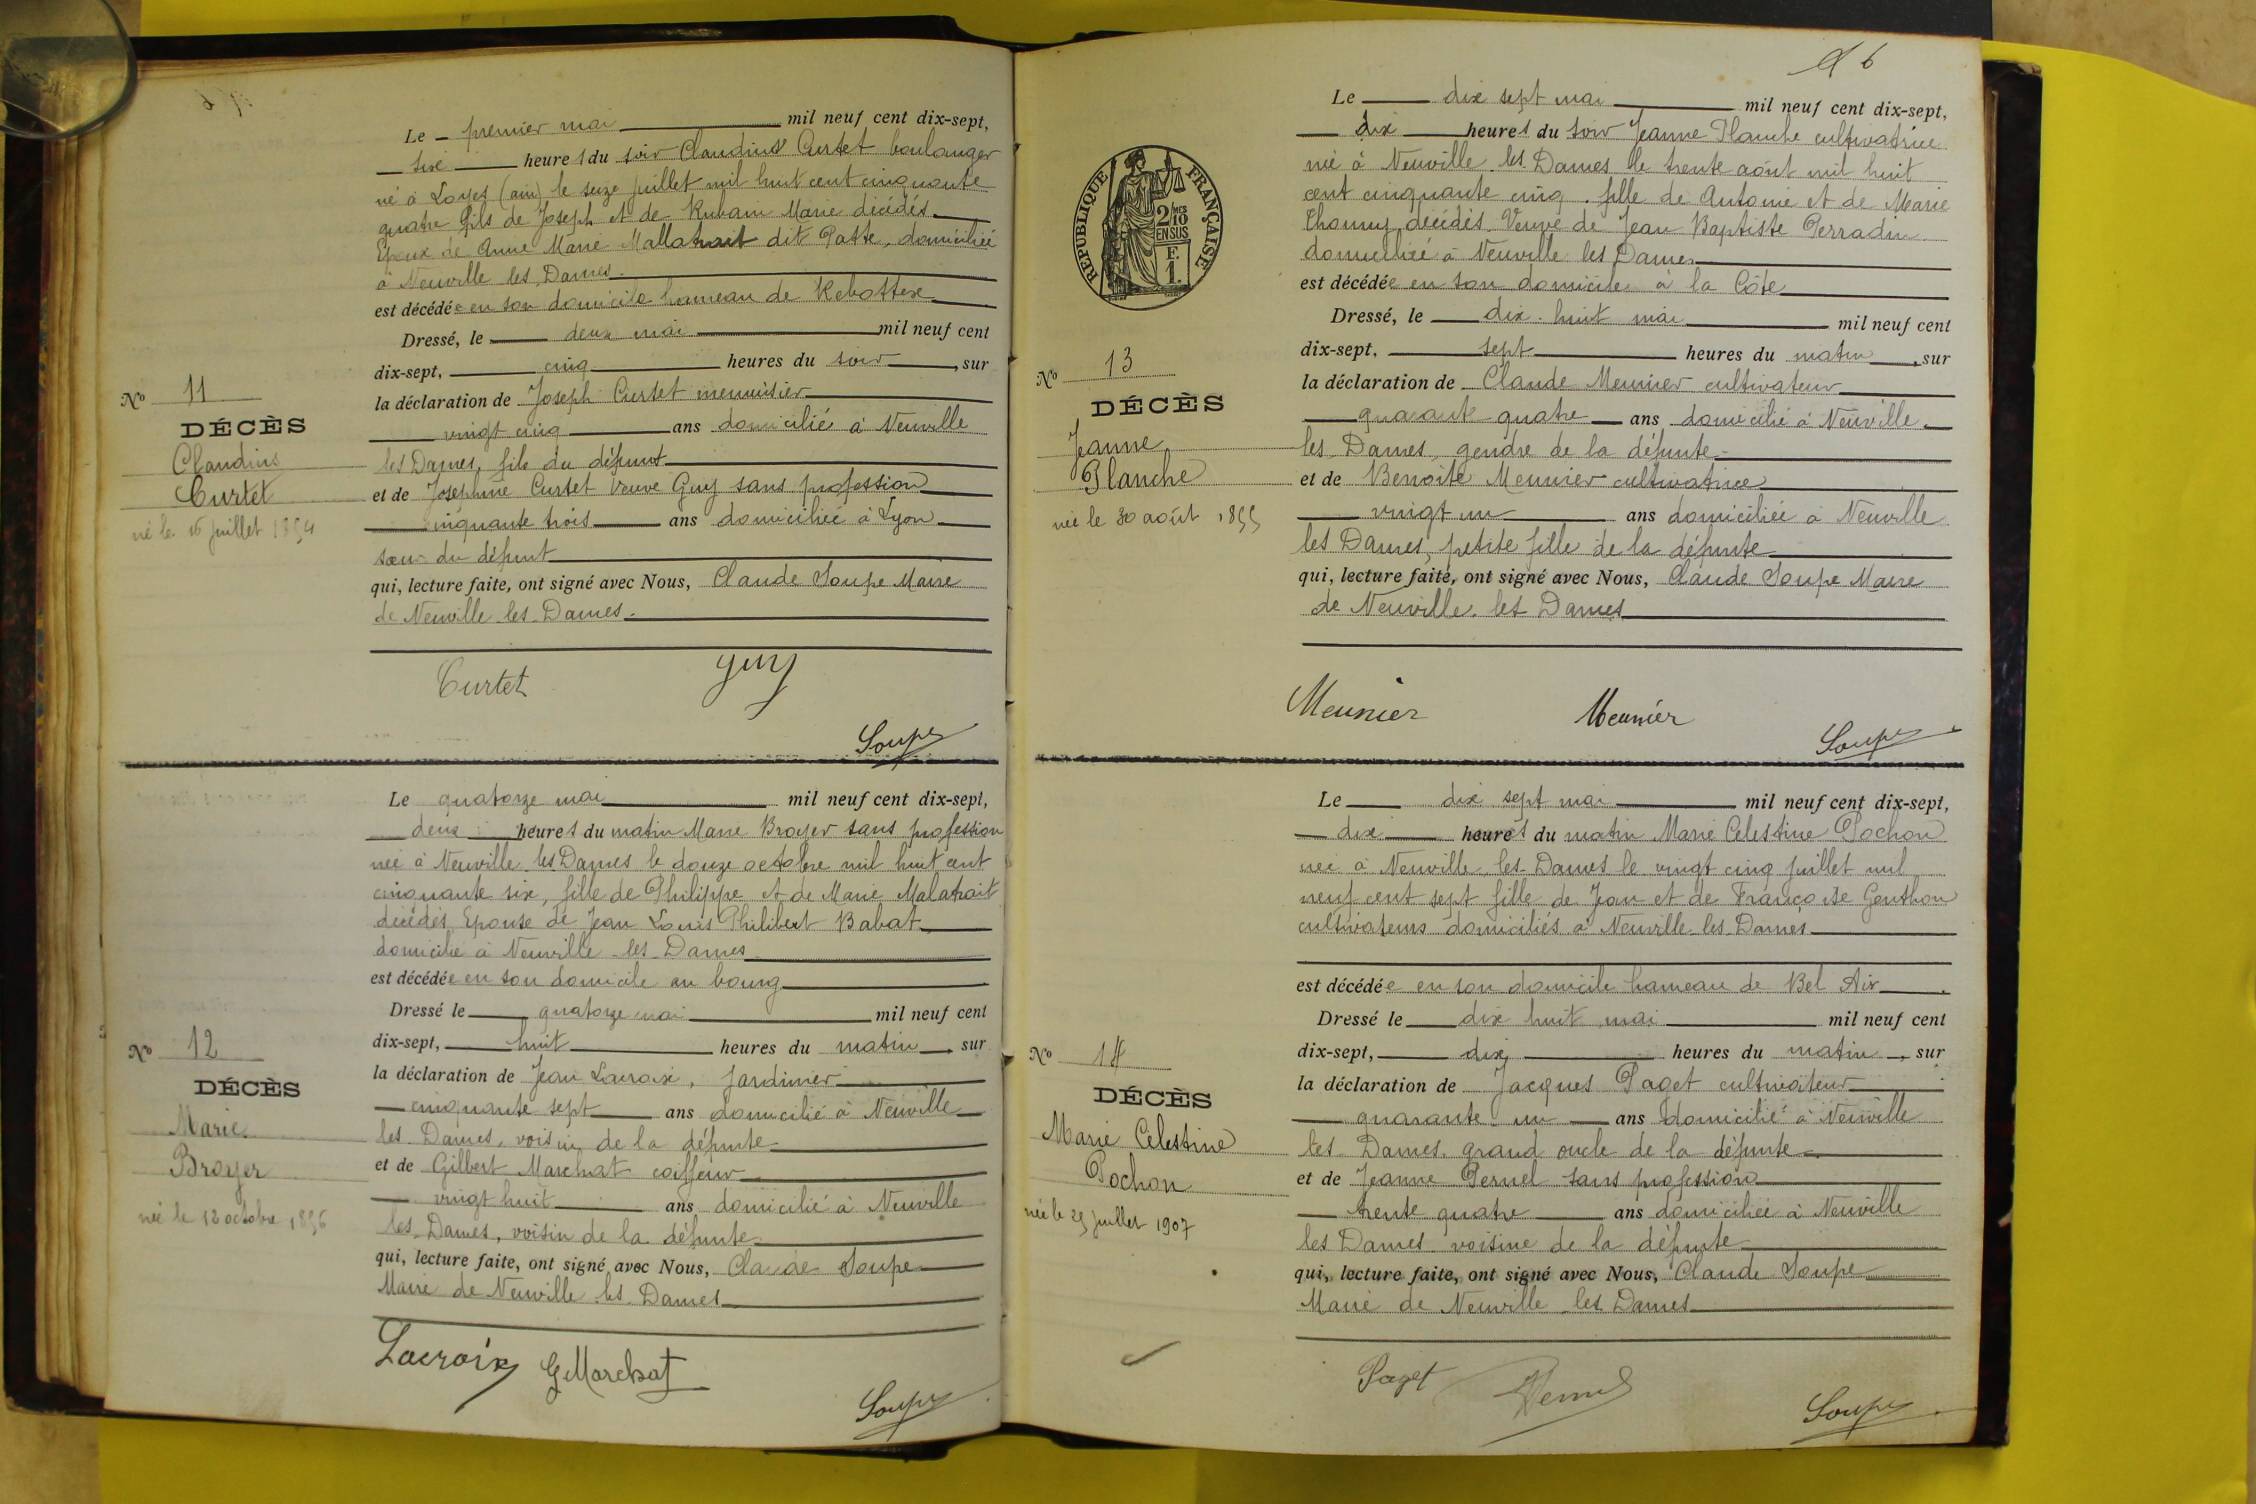 Le premier mai mil neuf cent dix-sept,
six heures du soir Claudius Curtet boulanger
né à Loyes (ain) le seize juillet mil huit cent cinquante
quatre fils de Joseph et de Rubain Marie décédés
Epoux de Anne Marie Mallatrait dit Patte, domiciliée
à Neuville les Dames.
est décédée en son domicile hameau de Rebottex
Dressé, le deux mai mil neuf cent
dix-sept, cinq heures du soir, sur
la déclaration de Joseph Curtet menuisier
vingt cinq ans domicilié à Neuville
les Dames, fils du défunt
et de Joséphine Curtet Veuve Guy sans profession
cinquante trois ans domiciliée à Lyon
sœur du défunt
qui, lecture faite, ont signé avec Nous, Claude Soupe Maire
de Neuville les Dames.
Curtet Guy
Soupe
No 11
DÉCÈS
Claudius
Curtet
né le 16 juillet 1854
Le quatorze mai mil neuf cent dix-sept,
deux heures du matin Marie Broyer sans profession
née à Neuville les Dames le douze octobre mil huit cent
cinquante six, fille de Philippe et de Marie Malatrait
décédés Epouse de Jean Louis Philibert Babat
domicilié à Neuville les Dames
est décédée en son domicile au bourg
Dressé le quatorze mai mil neuf cent
dix-sept, huit heures du matin, sur
la déclaration de Jean Lacroix, jardinier
cinquante sept ans domicilié à Neuville
les Dames, voisin de la défunte
et de Gilbert Marchat coiffeur
vingt huit ans domicilié à Neuville
les Dames, voisin de la défunte
qui, lecture faite, ont signé avec Nous, Claude Soupe
Maire de Neuville les Dames
Lacroix G Marchat
Soupe
No 12
DÉCÈS
Marie
Broyer
née le 12 octobre 1856
6
Le dix sept mai mil neuf cent dix-sept,
dix heures du soir Jeanne Planche cultivatrice
née à Neuville les Dames le trente août mil huit
cent cinquante cinq. fille de Antoine et de Marie
Thomny, décédés. Veuve de Jean Baptiste Perradin
domiciliée à Neuville les Dames
est décédée en son domicile à la Côte
Dressé, le dix-huit mai mil neuf cent
dix-sept, sept heures du matin, sur
la déclaration de Claude Meunier cultivateur
quarante quatre ans domicilié à Neuville
les Dames, gendre de la défunte
et de Benoite Meunier cultivatrice
vingt un ans domiciliée à Neuville
les Dames, petite fille de la défunte
qui, lecture faite, ont signé avec Nous, Claude Soupe Maire
de Neuville les Dames
Meunier Meunier
Soupe
RÉPUBLIQUE FRANÇAISE
2/10 MES
EN SUS
F.
1.
No 13
DÉCÈS
Jeanne
Planche
née le 30 août 1855
Le dix sept mai mil neuf cent dix-sept,
dix heures du matin Marie Celestine Pochon
née à Neuville les Dames le vingt cinq juillet mil
neuf cent sept fille de Jean et de Françoise Genthon
cultivateurs domiciliés à Neuville les Dames
est décédée en son domicile hameau de Bel Air
Dressé le dix huit mai mil neuf cent
dix-sept, dix heures du matin, sur
la déclaration de Jacques Paget cultivateur
quarante un ans domicilié à Neuville
les Dames, grand oncle de la défunte
et de Jeanne Pernel sans profession
trente quatre ans domiciliée à Neuville
les Dames voisine de la défunte
qui, lecture faite, ont signé avec Nous, Claude Soupe
Maire de Neuville les Dames
Paget Pernel
Soupe
No 14
DÉCÈS
Marie Celestine
Pochon
née le 25 juillet 1907